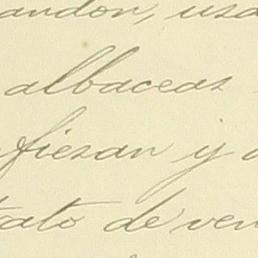 andon, usa
albaceas
fiezan y
trato de ven